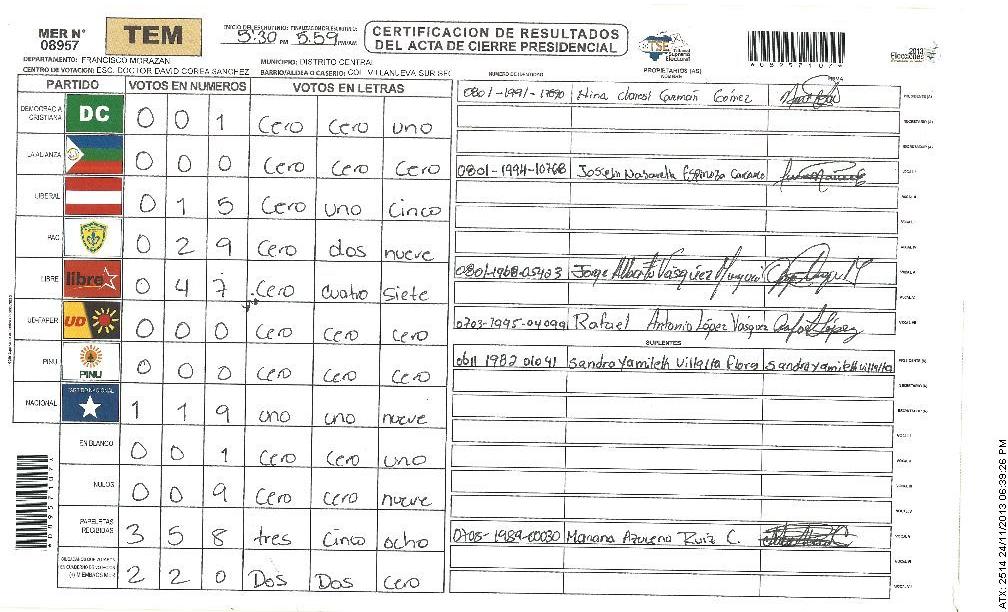 MER N° 08957
TEM
INICIO DEL ESCRUTINIO: FINALIZACION DEL ESCRUTINIO:
5:30 PM 5:59 PM/AM
CERTIFICACION DE RESULTADOS
DEL ACTA DE CIERRE PRESIDENCIAL
TSE Tribunal Supremo Electoral
2013
Elecciones
DEPARTAMENTO: FRANCISCO MORAZAN
MUNICIPIO: DISTRITO CENTRAL
CENTRO DE VOTACION: ESC. DOCTOR DAVID COREA SANCHEZ
BARRIO/ALDEA O CASERIO: COL VILLANUEVA SUR SEC
PROPIETARIOS (AS)
NUMERO DE IDENTIDAD NOMBRE FIRMA
PARTIDO VOTOS EN NUMEROS VOTOS EN LETRAS
DEMOCRACIA CRISTIANA DC 0 0 1 Cero Cero uno
LA ALIANZA 0 0 0 Cero Cero Cero
LIBERAL 0 1 5 Cero uno Cinco
PAC 0 2 9 Cero dos nueve
LIBRE libre 0 4 7 Cero cuatro siete
UD-FAPER UD 0 0 0 Cero Cero Cero
PINU PINU 0 0 0 Cero Cero Cero
NACIONAL PARTIDO NACIONAL 1 1 9 uno uno nueve
EN BLANCO 0 0 1 Cero Cero uno
NULOS 0 0 9 Cero Cero nueve
PAPELETAS RECIBIDAS 3 5 8 tres Cinco ocho
2 2 0 Dos Dos Cero
PRESIDENTE (A)
SECRETARIO (A)
0801-1994-10768 Joselin
0801-1968-05403 Jorge Alberto Vásquez
0703-1995-04099 Rafael Antonio López Vásquez
SUPLENTES
0611 1982 01091 Sandra Yamileth Villalta Flores Sandra Yamileth Villalta
0705-1989-00030 Mariana Azucena Ruiz C.
ATX: 2514 24/11/2013 06:39:26 PM